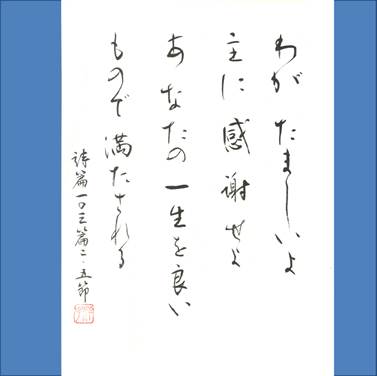 わが たましいよ
主に 感謝せよ
あなたの 一生を良い
もので 満たされる
詩篇一〇三篇二・五節